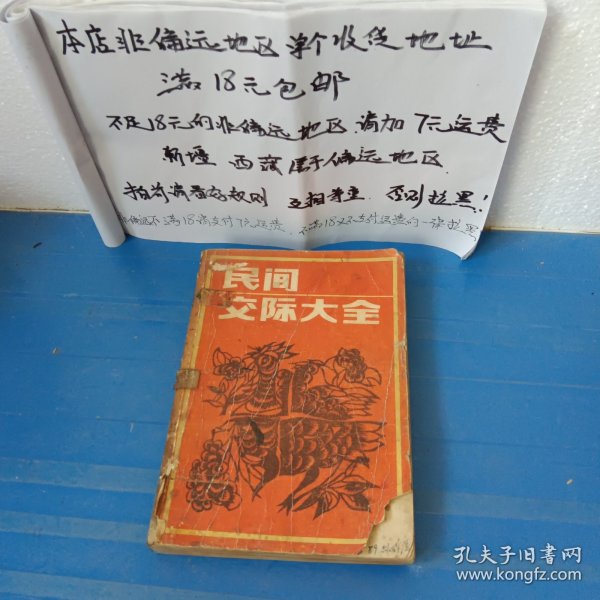 本店非偏远地区单个收货地址
满18元包邮
不足18元的非偏远地区请加7元运费
新疆 西藏属于偏远地区
拍前请看店规则 互相尊重 否则拉黑！
非偏远不满18需支付7元运费.不满18又不支付运费的一律拉黑
民间
交际大全
孔夫子旧书网
www.kongfz.com